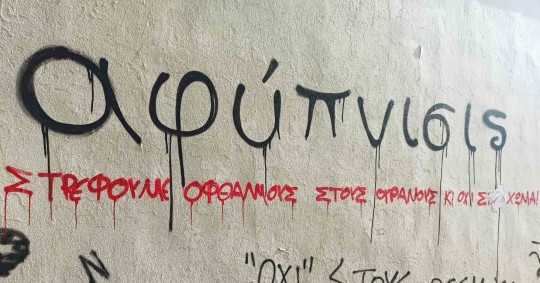 αφύπνισις
ΣΤΡΕΦΟΥΜΕ ΟΦΘΑΛΜΟΥΣ ΣΤΟΥΣ ΟΥΡΑΝΟΥΣ ΚΙ ΟΧΙ ΧΩΜΑ!
"ΟΧΙ" ΣΤΟΥΣ